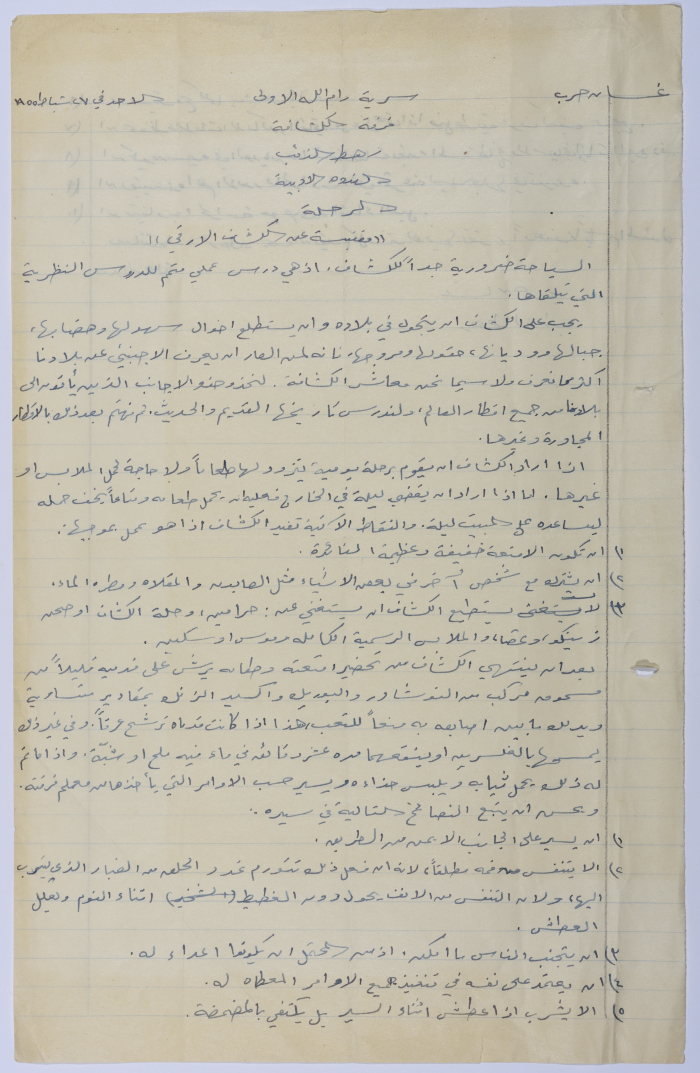 غسان حرب سرية رام الله الاولى الاحد في ٢٧ شباط ١٩٥٥
فرقة الكشافة
رهط الذئب
الندوه الادبية
الرحلة
"مقتبسة عن الكشاف الارقي"
السياحة ضرورية جداً للكشاف، اذ هي درس عملي متم للدروس النظرية
التي يتلقاها.
يجب على الكشاف ان يتجول في بلاده وان يستطلع احوال سهولها وهضابها،
جبالها ووديانها، حقولها ومروجها، فانه لمن العار ان يعرف الاجنبي عن بلادنا
اكثر مما نعرف ولا سيما نحن معاشر الكشافة. لنحذ حذو الاجانب الذين يأتون الى
بلادنا من جميع اقطار العالم، ولندرس تاريخها القديم والحديث. ثم نهتم بعد ذلك بالاقطار
المجاورة وغيرها.
اذا اراد الكشاف ان يقوم برحلة يومية يتزود لها طعاماً ولا حاجة لحمل الملابس او
غيرها. اما اذا اراد ان يقضي ليلة في الخارج فعليه ان يحمل طعامه ومتاعاً يخف حمله
ليساعده على المبيت ليلة. والنقاط الآتية تفيد الكشاف اذا هو عمل بموجبها:
١) ان تكون الامتعة خفيفة وعظيمة الفائدة.
٢) ان يشترك مع شخص آخر في بعض الاشياء مثل الصابون والمقلاه ومطره الماء.
٣) يستطيع الكشاف ان يستغني عن: حرامين، وحلة الكشاف او صحن
زينكو، وعصا، والملابس الرسمية الكامله وموس او سكين.
بعد ان ينتهي الكشاف من تحضير امتعته وطعامه يرش على قدميه قليلاً من
مسحوق مركب من النشادر والبودره واكسيد الزنك بمقادير متساوية
ويدلك ما بين اصابعه به منعاً للتعب، هذا اذا كانت قدماه ترشح عرقاً. وفي غير ذلك
يمسحها بالغلسرين او ينقعهما مده عشر دقائق في ماء فيه ملح او شبّة. واذا ما تم
له ذلك يحمل ثيابه ويلبس حذاءه ويسير حسب الاوامر التي يأخذها من معلم فرقته.
ويحسن ان يتبع النصائح التالية في سيره.
١) ان يسير على الجانب الايمن من الطريق.
٢) الا يتنفس من فمه مطلقاً، لانه ان فعل ذلك تتورم غدد الحلق من الغبار الذي يتسرب
اليها، ولان التنفس من الانف يحول دون الغطيط (الشخير) اثناء النوم ويقلل
العطش.
٣) ان يتجنب الناس ما امكن. اذ من المحتمل ان يكونوا اعداء له.
٤) ان يعتمد على نفسه في تنفيذ جميع الاوامر المعطاه له.
٥) الا يشرب اذا عطش اثناء السير بل يكتفي بالمضمضة.